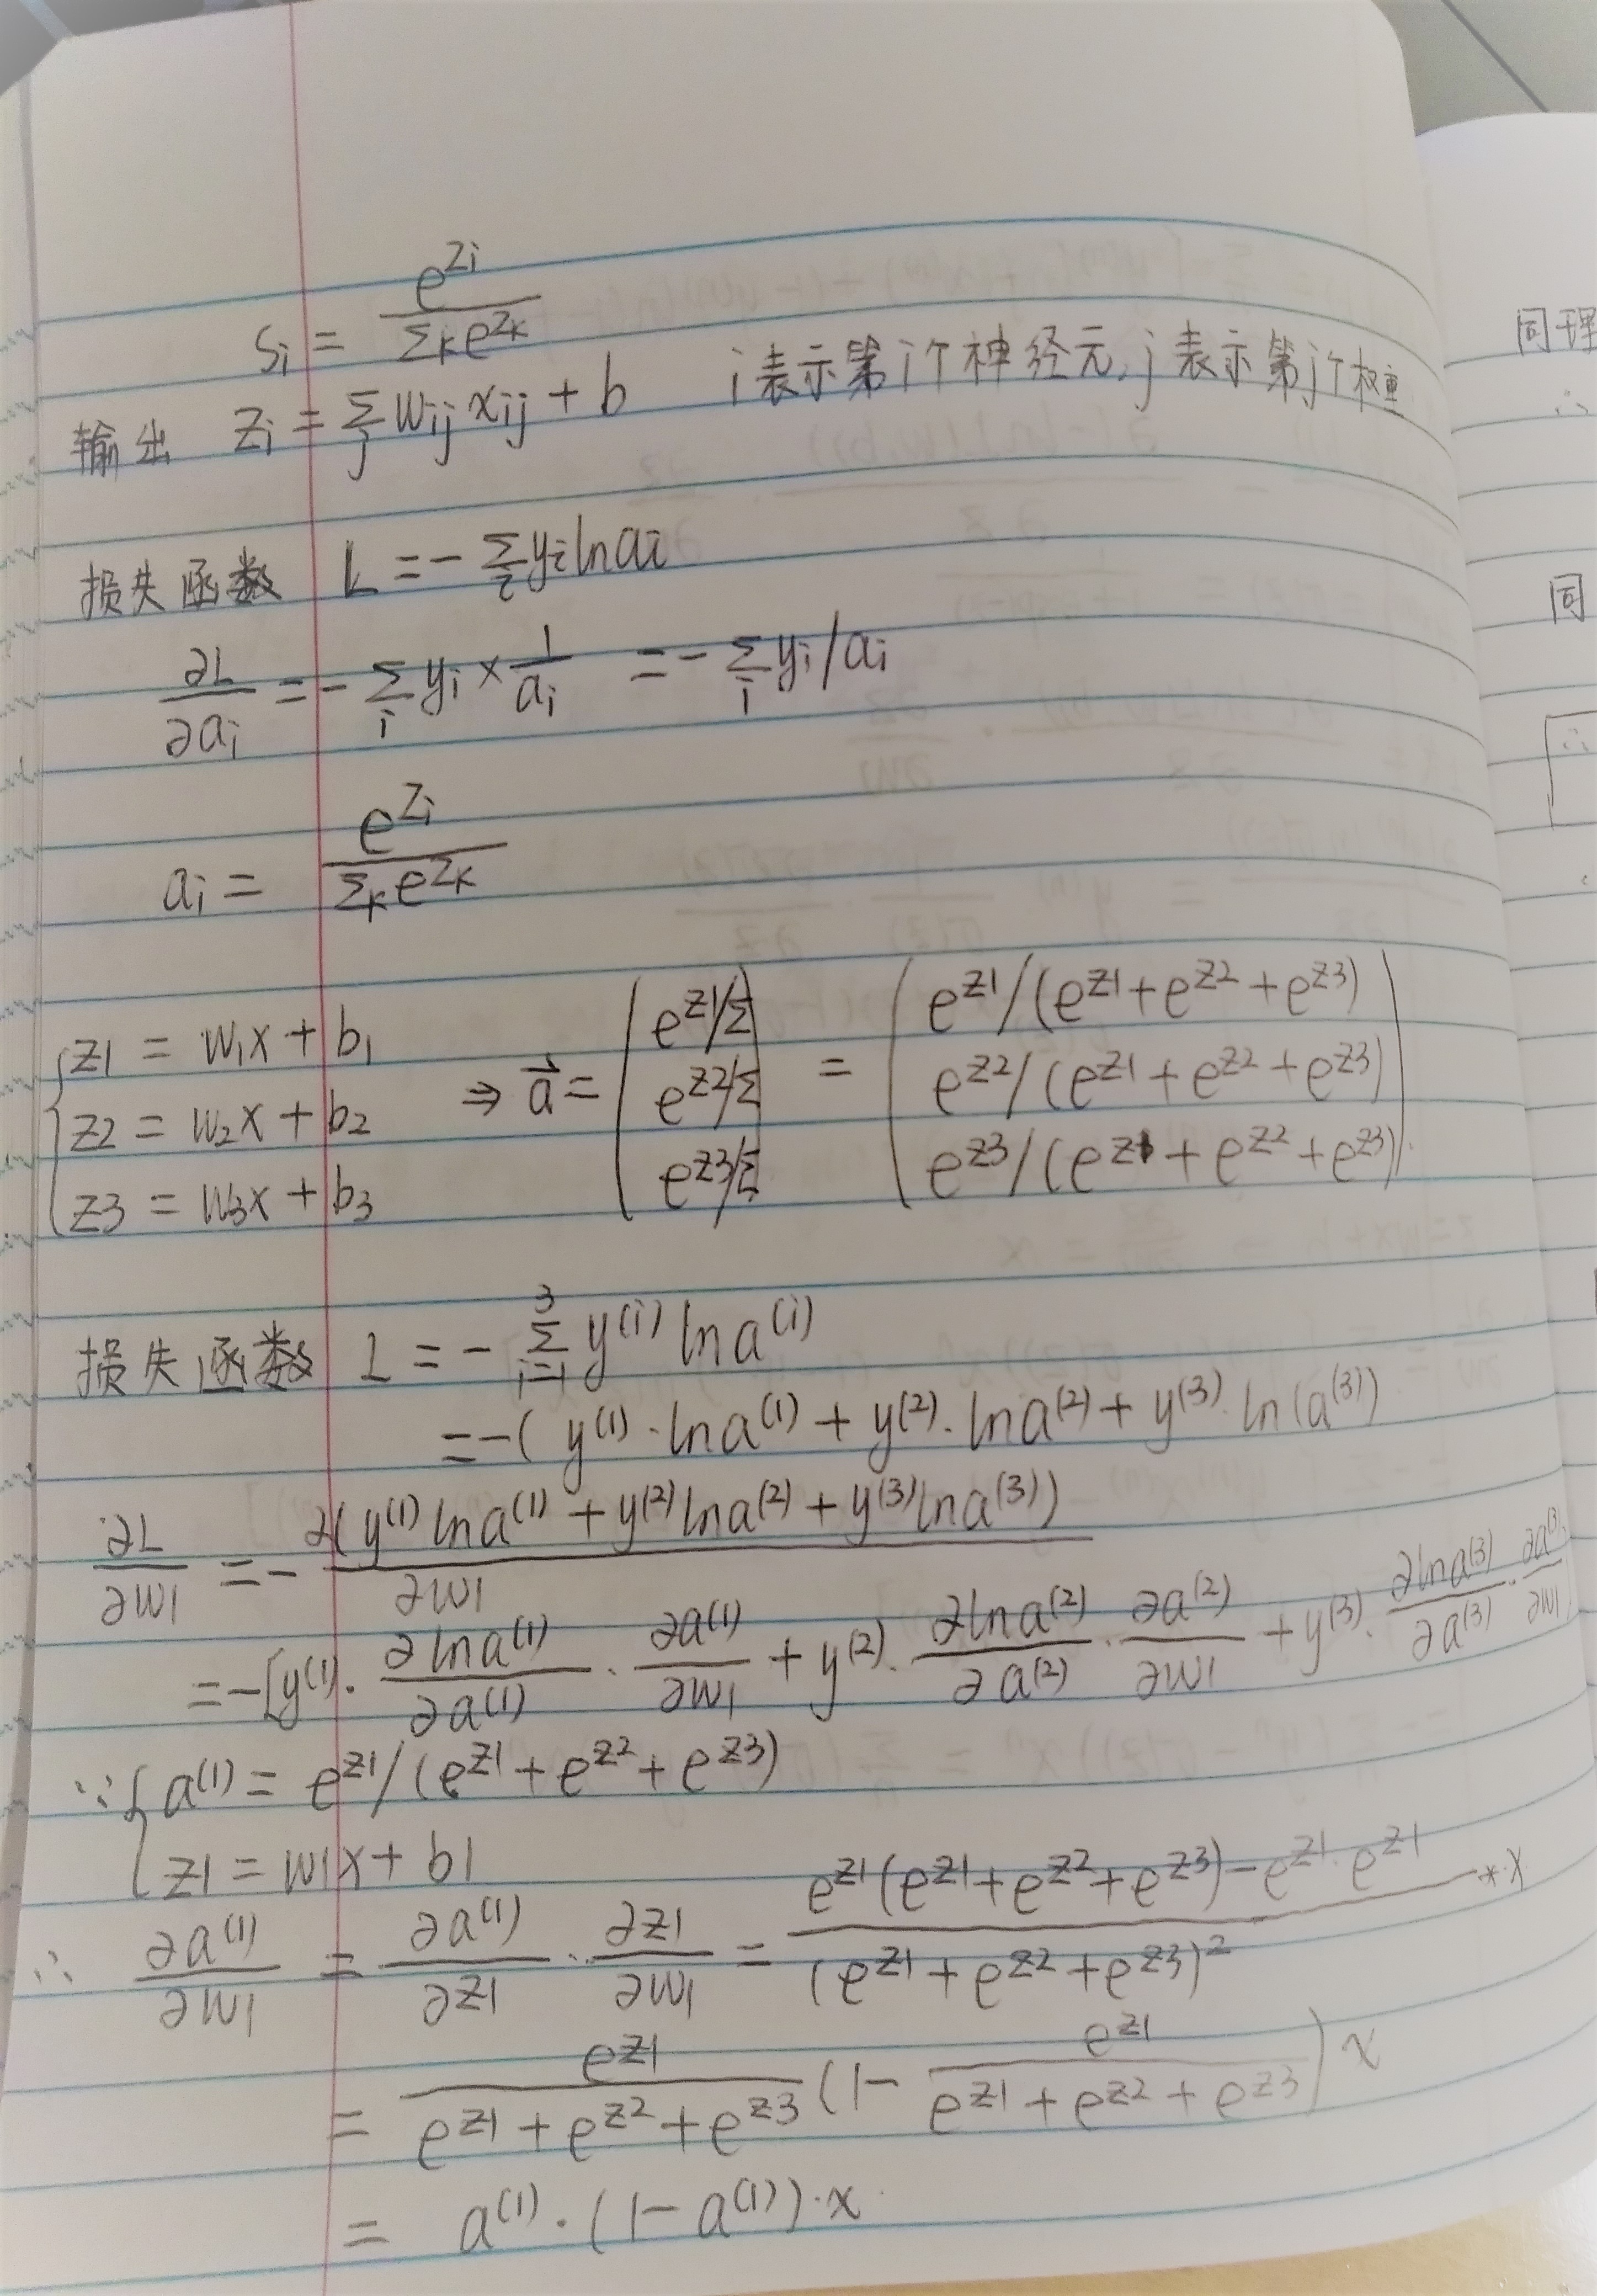 Si = e^{Zi} / Σ_k e^{Zk}
输出 Zi = Σ_j Wij xij + b i表示第i个神经元, j表示第j个权重
损失函数 L = - Σ_i yi ln ai
∂L/∂ai = - Σ_i yi × 1/ai = - Σ_i yi/ai
ai = e^{Zi} / Σ_k e^{Zk}
{ z1 = w1x + b1
z2 = w2x + b2
z3 = w3x + b3
⇒ a⃗ = ( e^{z1}/Σ
e^{z2}/Σ
e^{z3}/Σ )
= ( e^{z1}/(e^{z1}+e^{z2}+e^{z3})
e^{z2}/(e^{z1}+e^{z2}+e^{z3})
e^{z3}/(e^{z1}+e^{z2}+e^{z3}) )
损失函数 L = - Σ_{i=1}^{3} y^{(i)} ln a^{(i)}
= -( y^{(1)}·ln a^{(1)} + y^{(2)}·ln a^{(2)} + y^{(3)}·ln(a^{(3)})
∂L/∂w1 = - ∂(y^{(1)} ln a^{(1)} + y^{(2)} ln a^{(2)} + y^{(3)} ln a^{(3)}) / ∂w1
= -[y^{(1)}· ∂ln a^{(1)}/∂a^{(1)} · ∂a^{(1)}/∂w1 + y^{(2)}· ∂ln a^{(2)}/∂a^{(2)} · ∂a^{(2)}/∂w1 + y^{(3)}· ∂ln a^{(3)}/∂a^{(3)} · ∂a^{(3)}/∂w1
∵ { a^{(1)} = e^{z1}/(e^{z1}+e^{z2}+e^{z3})
z1 = w1x + b1
∴ ∂a^{(1)}/∂w1 = ∂a^{(1)}/∂z1 · ∂z1/∂w1 = (e^{z1}(e^{z1}+e^{z2}+e^{z3}) - e^{z1}·e^{z1}) / (e^{z1}+e^{z2}+e^{z3})^2 * x
= e^{z1}/(e^{z1}+e^{z2}+e^{z3}) (1 - e^{z1}/(e^{z1}+e^{z2}+e^{z3})) x
= a^{(1)}·(1-a^{(1)})·x
同理
∴
同
∴